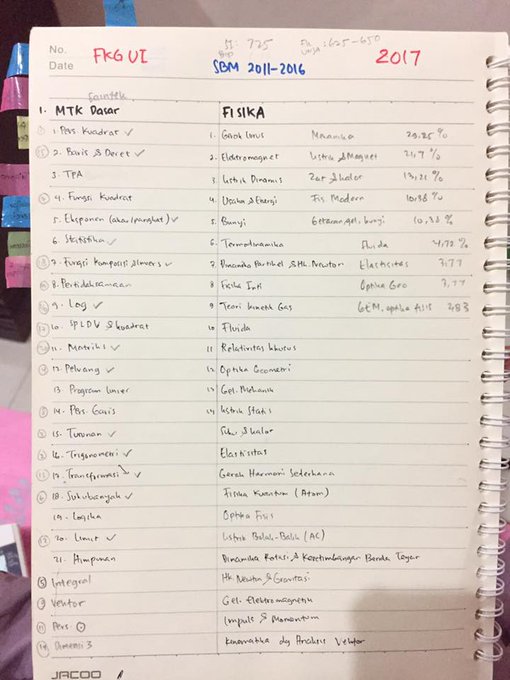 No.
Date
FKG UI
SBM 2011-2016
2017
ST: 725
625-650
Saintek
1. MTK Dasar
FISIKA
1. Pers Kuadrat ✓
1. Gerak lurus
Mekanika
2. Baris & Deret ✓
2. Elektromagnet
listrik & Magnet
21,7 %
3. TPA
3. listrik Dinamis
Zat & kalor
4. Fungsi Kuadrat
4. Usaha & Energi
Fis Modern
10,38 %
5. Eksponen (akar/pangkat) ✓
5. Bunyi
Getaran, gel, bunyi
10,38 %
6. Statistika ✓
6. Termodinamika
Fluida
4,72 %
7. Fungsi Komposisi & Invers ✓
7. Dinamika Partikel & Hk. Newton
Elastisitas
3,77
8. Pertidaksamaan
8. Fisika Inti
Optika Geo
3,77
9. Log ✓
9 Teori kinetik Gas
GEM, optika fisis
2,83
10. SPLDV & kuadrat
10 Fluida
11. Matriks ✓
11 Relativitas khusus
12. Peluang ✓
12 Optika Geometri
13. Program linier
13 Gel. Mekanik
14. Pers. Garis
14 listrik Statis
15. Turunan ✓
Suhu & kalor
16. Trigonometri ✓
Elastisitas
17. Transformasi ✓
Gerak Harmoni Sederhana
18. Sukubanyak ✓
Fisika Kuantum (Atom)
19. Logika
Optika Fisis
20. Limit ✓
listrik Bolak-Balik (AC)
21. Himpunan
Dinamika Rotasi & Kesetimbangan Benda Tegar
Integral
Hk. Newton & Gravitasi
Vektor
Gel. Elektromagnetik
Pers
Impuls & Momentum
Dimensi 3
Kinematika dg Analisis Vektor
JACOO